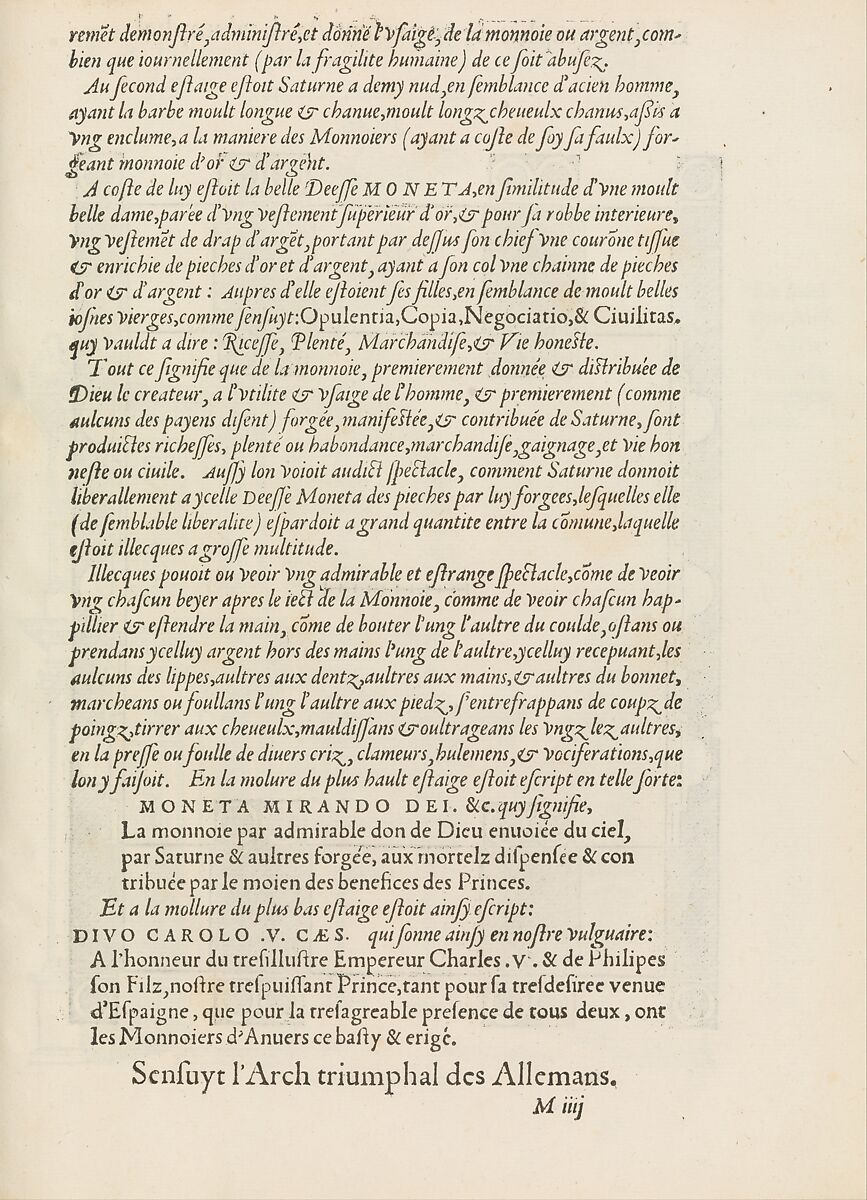 remēt demonſtré,adminiſtré,et donné l'vſaige,de la monnoie ou argent,com-
bien que iournellement (par la fragilite humaine) de ce ſoit abuſez.
Au ſecond eſtaige eſtoit Saturne a demy nud,en ſemblance d'acien homme,
ayant la barbe moult longue & chanue,moult longz cheueulx chanus,aßis a
vng enclume,a la maniere des Monnoiers (ayant a coſte de ſoy ſa faulx) for-
geant monnoie d'or & d'argent.
A coſte de luy eſtoit la belle Deeſſe MONETA,en ſimilitude d'vne moult
belle dame,parée d'vng veſtement ſuperieur d'or,& pour ſa robbe interieure,
vng veſtemēt de drap d'argēt,portant par deſſus ſon chief vne courōne tiſſue
& enrichie de pieches d'or et d'argent,ayant a ſon col vne chainne de pieches
d'or & d'argent : Aupres d'elle eſtoient ſes filles,en ſemblance de moult belles
ioſnes vierges,comme ſenſuyt:Opulentia,Copia,Negociatio,& Ciuilitas.
quy vauldt a dire : Riceſſe, Plenté, Marchandiſe,& Vie honeſte.
Tout ce ſignifie que de la monnoie, premierement donnée & diſtribuée de
Dieu le createur, a l'vtilite & vſaige de l'homme, & premierement (comme
aulcuns des payens diſent) forgée,manifeſtée,& contribuée de Saturne, ſont
produictes richeſſes, plenté ou habondance,marchandiſe,gaignage,et vie hon
neſte ou ciuile. Auſſy lon voioit audict ſpectacle, comment Saturne donnoit
liberallement a ycelle Deeſſe Moneta des pieches par luy forgees,leſquelles elle
(de ſemblable liberalite) eſpardoit a grand quantite entre la cōmune,laquelle
eſtoit illecques a groſſe multitude.
Illecques pouoit ou veoir vng admirable et eſtrange ſpectacle,cōme de veoir
vng chaſcun beyer apres le iect de la Monnoie, comme de veoir chaſcun hap-
pillier & eſtendre la main, cōme de bouter l'ung l'aultre du coulde,oſtans ou
prendans ycelluy argent hors des mains l'ung de l'aultre,ycelluy recepuant,les
aulcuns des lippes,aultres aux dentz,aultres aux mains,& aultres du bonnet,
marcheans ou foullans l'ung l'aultre aux piedz, ſ'entrefrappans de coupz de
poingz,tirrer aux cheueulx,mauldiſſans & oultrageans les vngz lez aultres,
en la preſſe ou foulle de diuers criz, clameurs,hulemens,& vociferations,que
lon y faiſoit. En la molure du plus hault eſtaige eſtoit eſcript en telle ſorte:
MONETA MIRANDO DEI. &c. quy ſignifie,
La monnoie par admirable don de Dieu enuoiée du ciel,
par Saturne & aultres forgée, aux mortelz diſpenſée & con
tribuée par le moien des benefices des Princes.
Et a la mollure du plus bas eſtaige eſtoit ainſy eſcript:
DIVO CAROLO .V. CÆS. qui ſonne ainſy en noſtre vulguaire:
A l'honneur du treſilluſtre Empereur Charles .V. & de Philipes
ſon Filz,noſtre treſpuiſſant Prince,tant pour ſa treſdeſiree venue
d'Eſpaigne, que pour la treſagreable preſence de tous deux, ont
les Monnoiers d'Anuers ce baſty & erigé.
Senſuyt l'Arch triumphal des Allemans.
M iiij